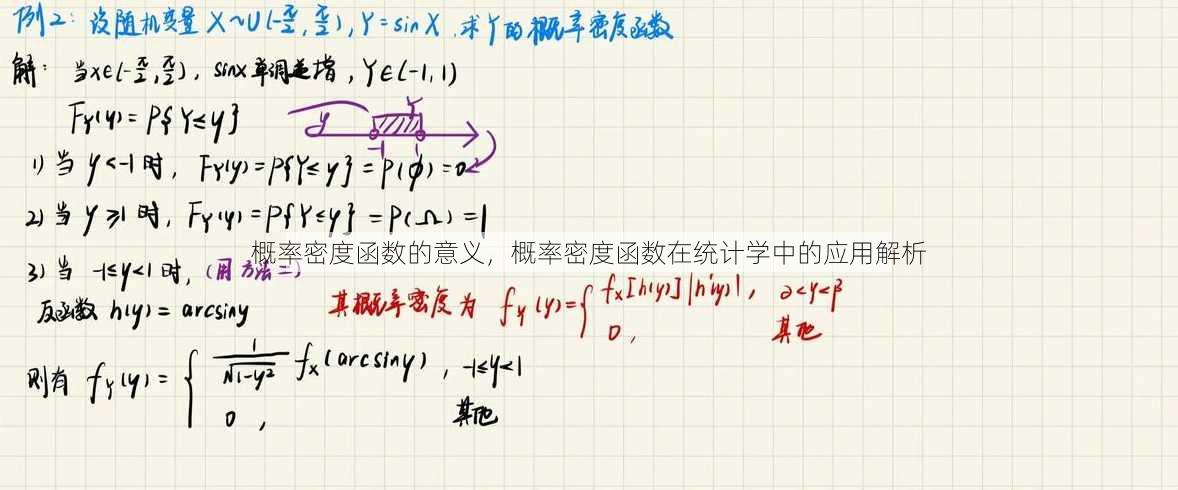 例2: 设随机变量 X~U(-π/2, π/2), Y=sinX, 求Y的概率密度函数
解: 当x∈(-π/2, π/2), sinx单调递增, Y∈(-1,1)
F_Y(y)=P{Y≤y}
y Y
-1 1
1) 当 y<-1 时, F_Y(y)=P{Y≤y}=P(∅)=0
2) 当 y≥1 时, F_Y(y)=P{Y≤y}=P(Ω)=1
概率密度函数的意义，概率密度函数在统计学中的应用解析
3) 当 -1≤y<1 时, (用方法二)
反函数 h(y)=arcsiny
其概率密度为 f_Y(y)={ f_X[h(y)]|h'(y)|, α<y<β
0, 其他
则有 f_Y(y)={ 1/√(1-y²) f_X(arcsiny), -1≤y<1
0, 其他